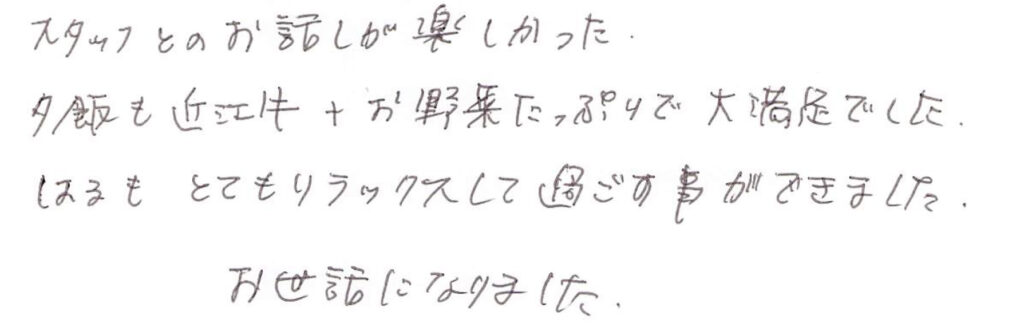 スタッフとのお話しが楽しかった.
夕飯も近江牛+お野菜たっぷりで大満足でした.
はるもとてもリラックスして過ごす事ができました.
お世話になりました.